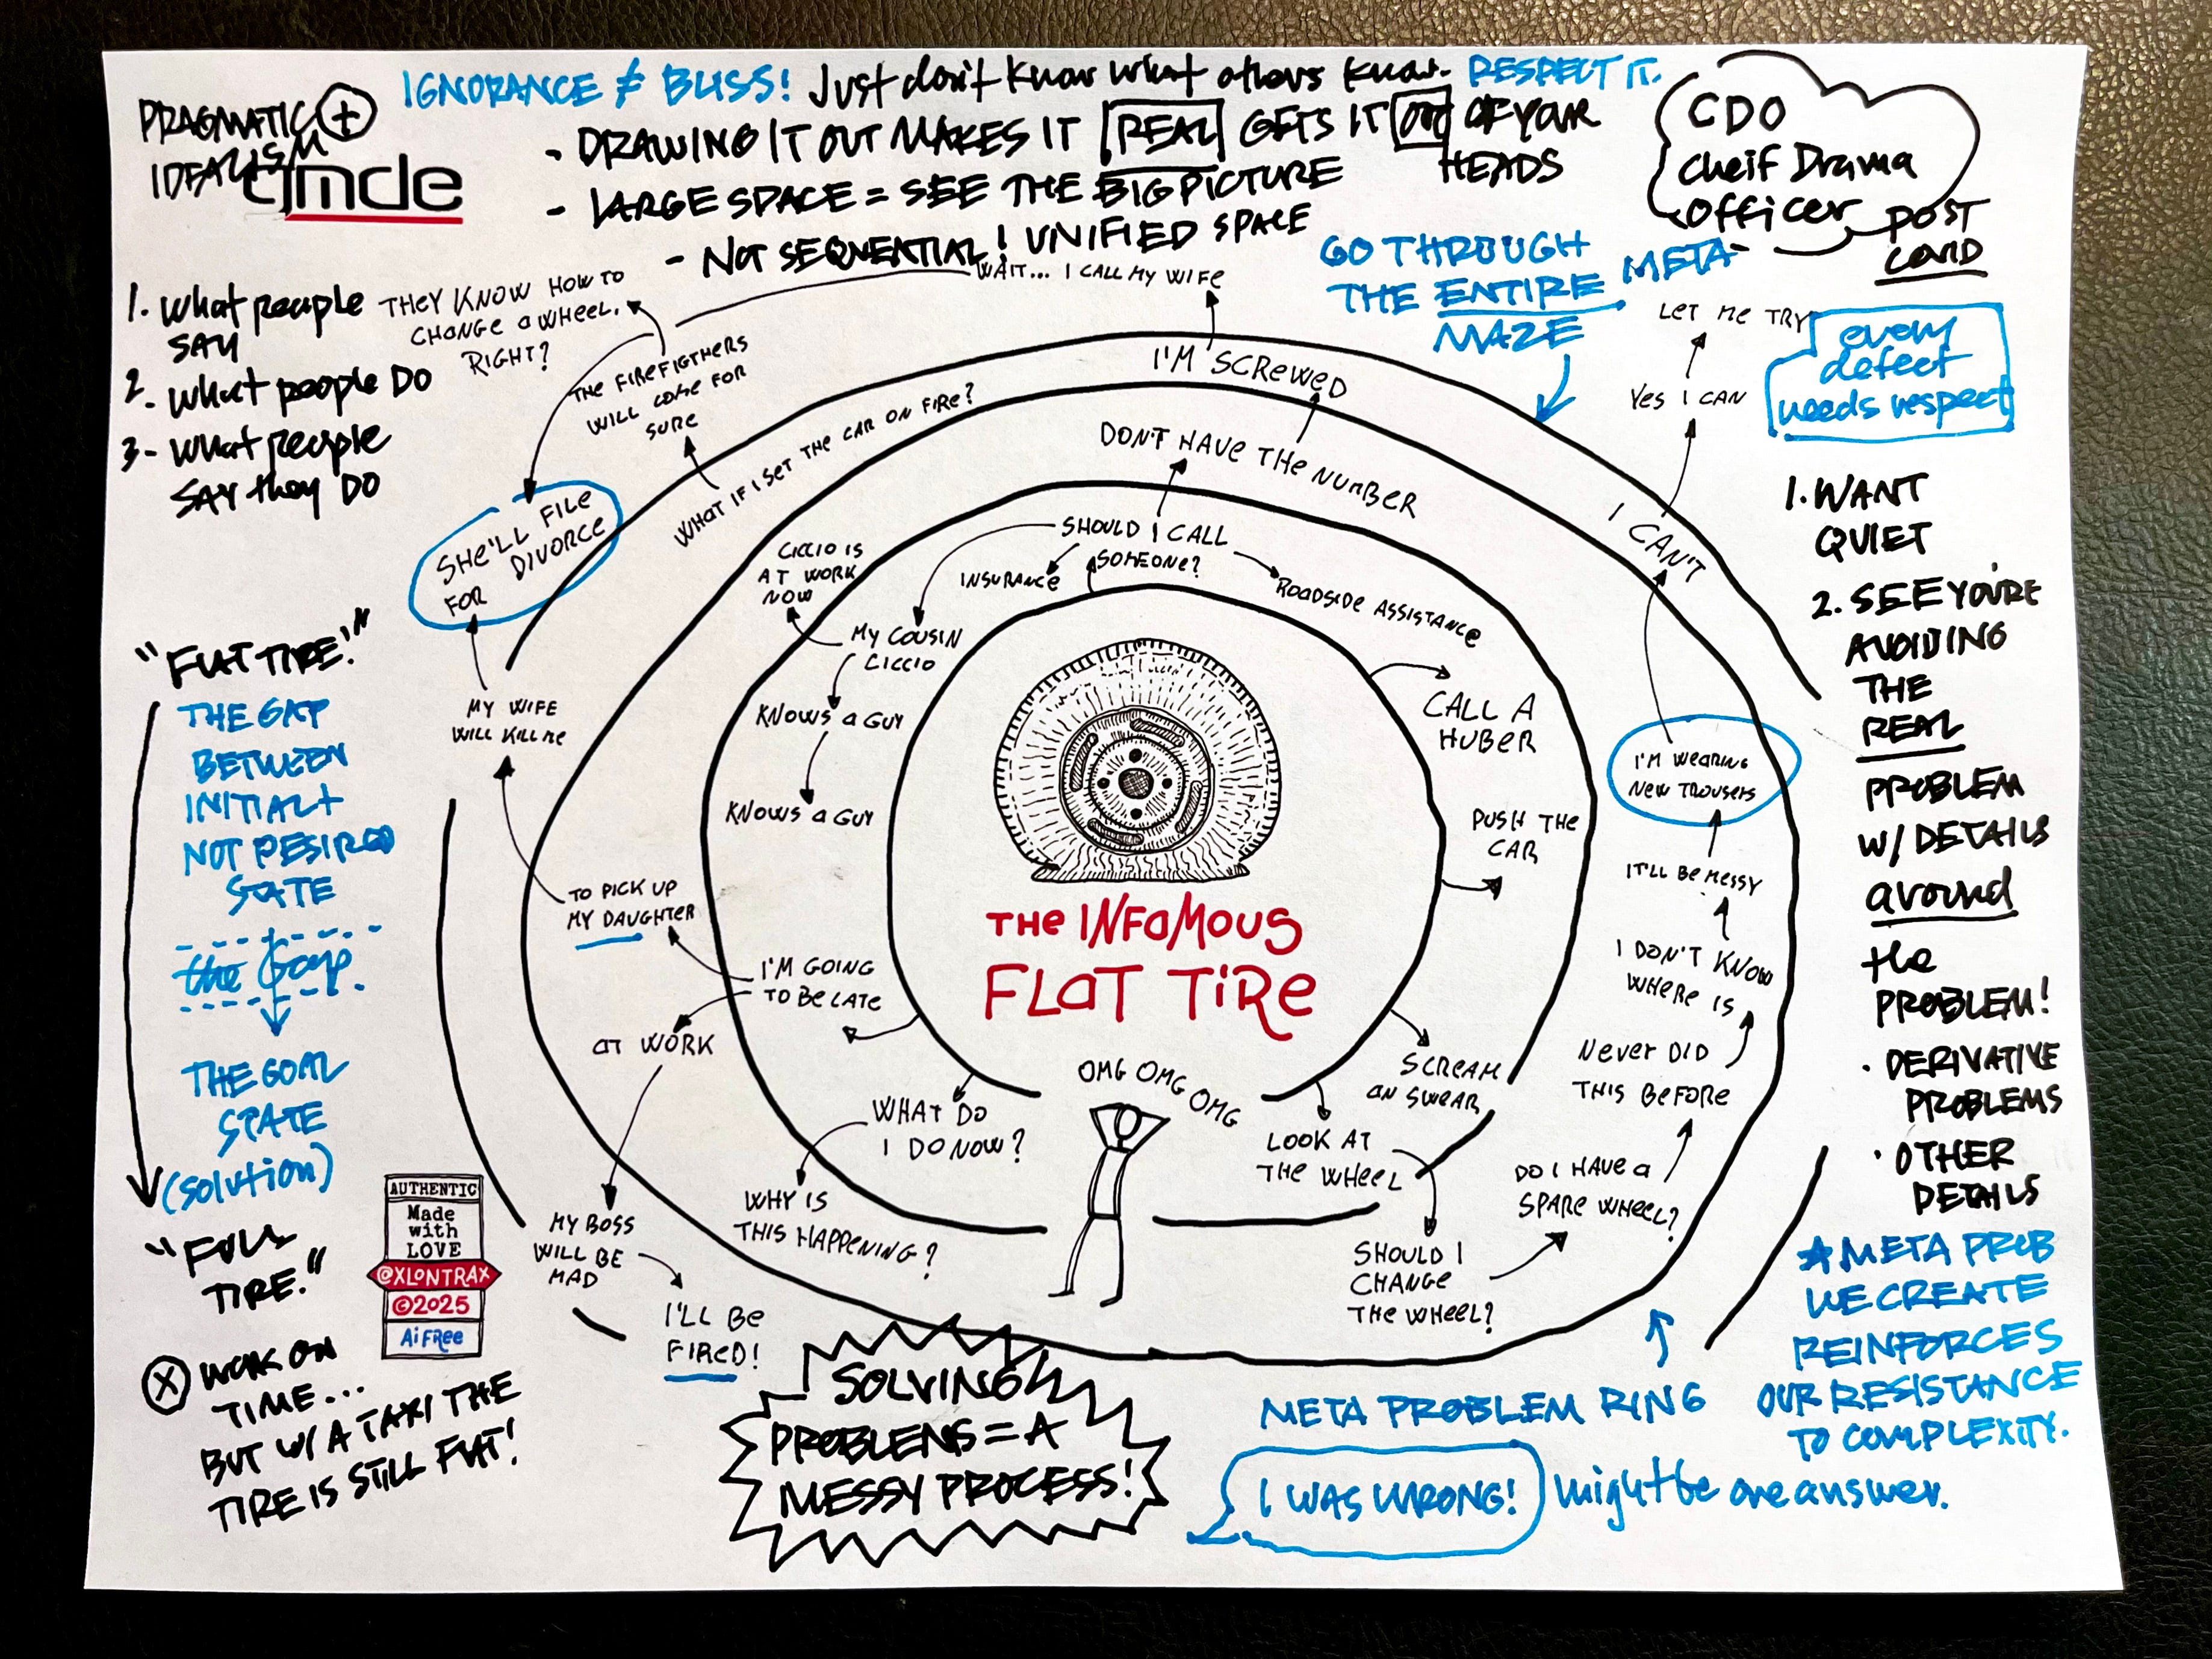 IGNORANCE ≠ BLISS! Just don't know what others know. RESPECT IT.
- DRAWING IT OUT MAKES IT REAL GETS IT OUT OF YOUR
HEADS
- LARGE SPACE = SEE THE BIG PICTURE
- NOT SEQUENTIAL! UNIFIED SPACE
PRAGMATIC +
IDEALISM
CDO
Cheif Drama
Officer
POST
COVID
GO THROUGH
THE ENTIRE META-
MAZE
1. What people
SAY
2. What people DO
3- What people
SAY they DO
THEY KNOW HOW TO
CHANGE a WHEEL.
RIGHT?
WAIT... I CALL MY WIFE
THE FIREFIGTHERS
WILL COME FOR
SURE
WHAT IF I SET THE CAR ON FIRE?
I'M SCREWED
DON'T HAVE THE NUMBER
SHOULD I CALL
SOMEONE?
INSURANCE
ROADSIDE ASSISTANCE
LET ME TRY
YES I CAN
I CAN'T
every
defect
needs respect
SHE'LL FILE
FOR DIVORCE
CICCIO IS
AT WORK
NOW
MY COUSIN
CICCIO
KNOWS a GUY
KNOWS a GUY
CALL A
HUBER
PUSH THE
CAR
I'M WEARING
NEW TROUSERS
IT'LL BE MESSY
I DON'T KNOW
WHERE IS
NEVER DID
THIS BEFORE
DO I HAVE a
SPARE WHEEL?
SHOULD I
CHANGE
THE WHEEL?
LOOK AT
THE WHEEL
SCREAM
AN SWEAR
THE INFAMOUS
FLAT TIRE
OMG OMG OMG
WHAT DO
I DO NOW?
WHY IS
THIS HAPPENING?
I'M GOING
TO BE LATE
TO PICK UP
MY DAUGHTER
MY WIFE
WILL KILL ME
AT WORK
MY BOSS
WILL BE
MAD
I'LL BE
FIRED!
"FLAT TIRE!"
THE GAP
BETWEEN
INITIAL +
NOT DESIRED
STATE
the Gap
THE GOAL
STATE
(solution)
"FULL
TIRE."
AUTHENTIC
Made
with
LOVE
@XLONTRAX
©2025
Ai FREE
X WORK ON
TIME...
BUT W/ A TAXI THE
TIRE IS STILL FLAT!
SOLVING
PROBLEMS = A
MESSY PROCESS!
META PROBLEM RING
I WAS WRONG! might be one answer.
1. WANT
QUIET
2. SEE YOU'RE
AVOIDING
THE
REAL
PROBLEM
W/ DETAILS
around
the
PROBLEM!
· DERIVATIVE
PROBLEMS
· OTHER
DETAILS
* META PROB
WE CREATE
REINFORCES
OUR RESISTANCE
TO COMPLEXITY.